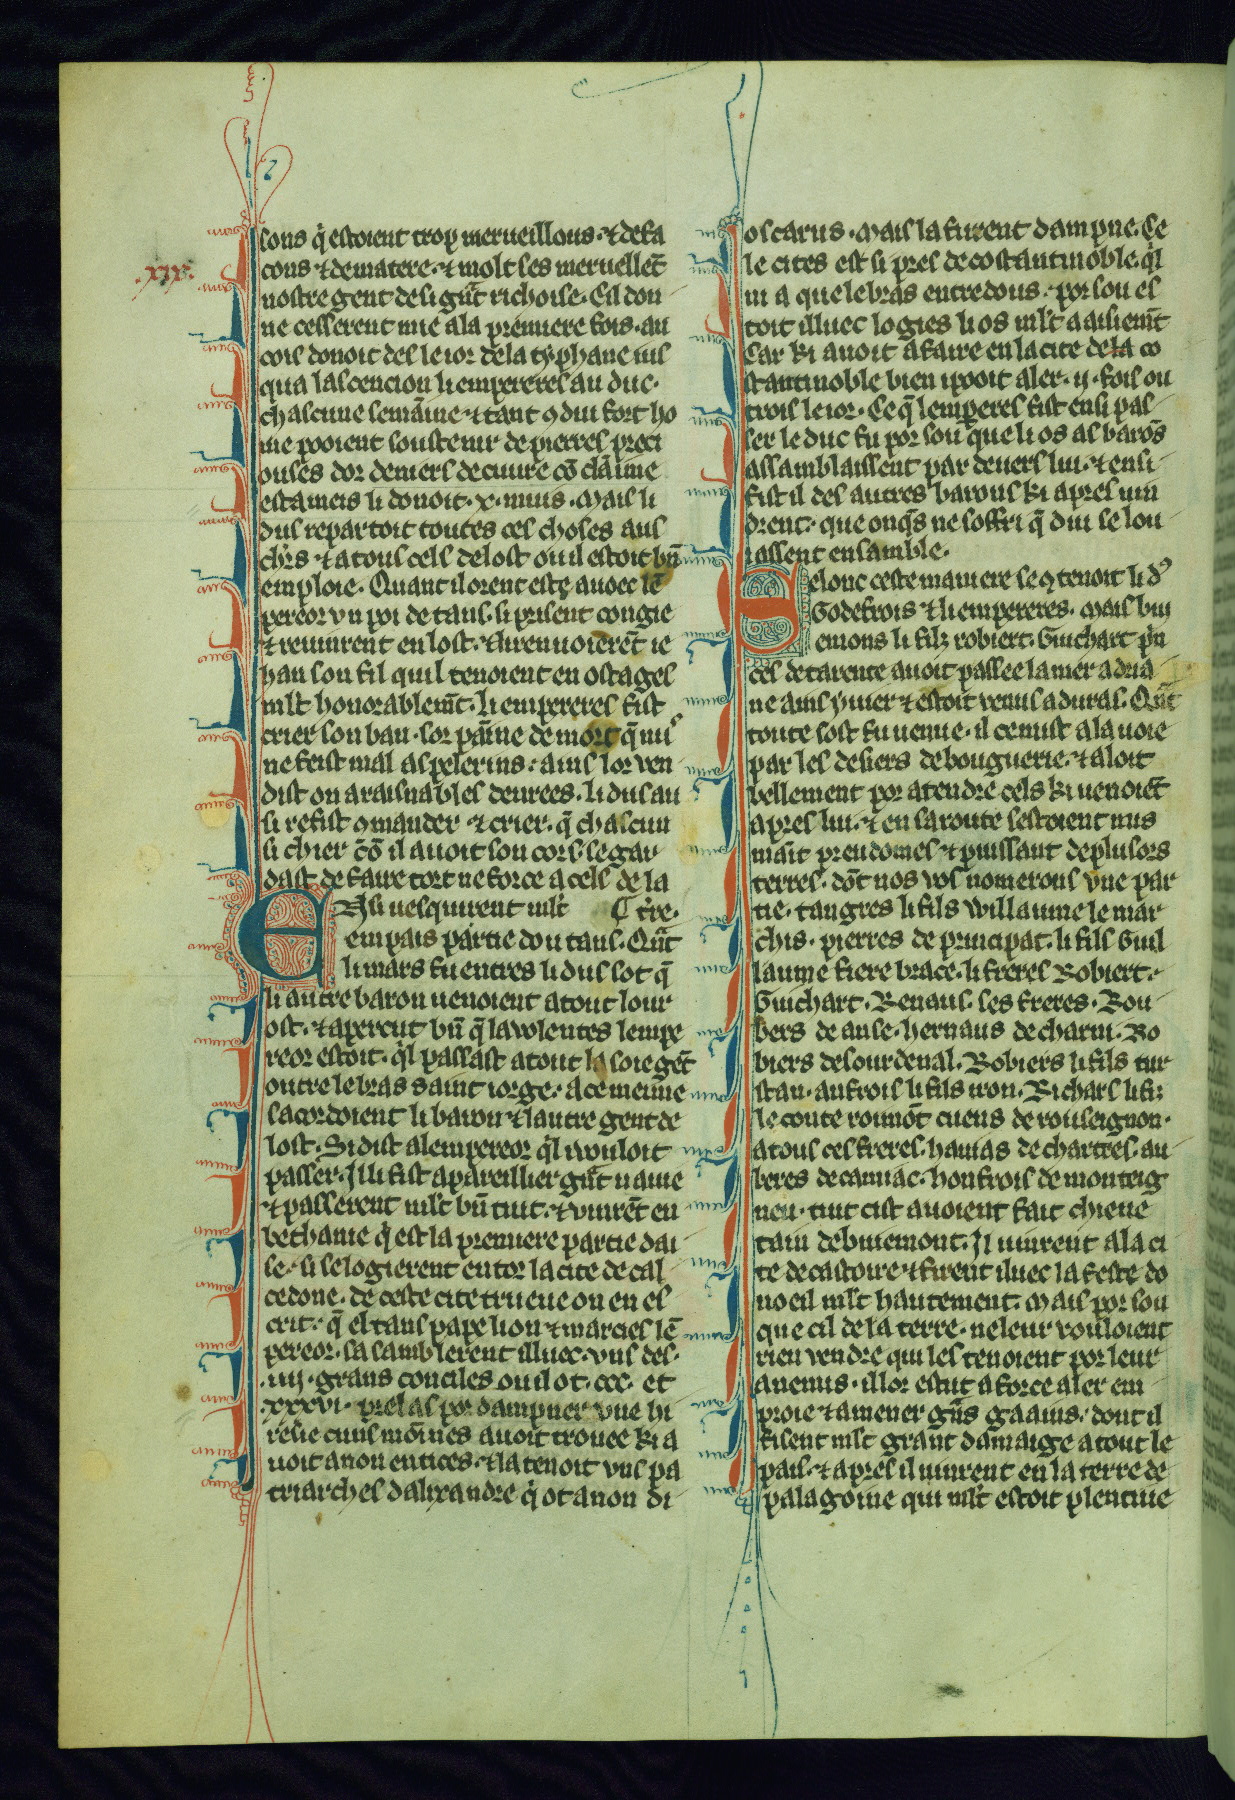 .xix.
sons q̇ estoient trop merueillous. ⁊ de fa
cons ⁊ de matere. ⁊ molt ses meruellẽt
nostre gent de si gũt richoise. Cil don
ne cesserent mie a la premiere fois. an
cois donoit des le ior de la typhane ius
qua lascencion li empereres au duc.
chascune semaĩne ⁊ tant ꝯ dui fort ho
me pooient soustenir de pierres preci
ouses dor deniers de cuiure cõ claime
estameis li donoit .x. muis. Mais li
dus repartoit toutes ces choses aus
chr̃s ⁊ a tous cels de lost ou il estoit bñ
emploie. Quant il orent este auoec lẽ
pereor vn poi de tans. si prisent congie
⁊ reuinrent en lost. ⁊ li renuoierẽt ie
han son fil quil tenoient en ostages
ml't honorablemt̃. li empereres fist
crier son ban. sor paĩne de mort q̃ nus
ne feist mal as pelerins. ains lor ven
dist on a raisnables denrees. li dus au
si refist ꝯmander ⁊ crier. q̃ chascun
si chier cõ il auoit son cors. se gar
dast de faire tort ne force a cels de la
Ensi uesquirent ml't ⸿ t're.
em pais partie dou tans. Qñt
li mars fu entres li dus sot q̃
li autre baron uenoient a tout lour
ost. ⁊ apercut bñ q̃ la volentes lempe
reor estoit. q̇l passast a tout la soie gẽt
outre le bras saint iorge. a ce meime
sacordoient li baron ⁊ lautre gent de
lost. Si dist a lempereor q̇l i vouloit
passer. Il li fist apareillier gñt nauie
⁊ passerent ml't bñ tuit. ⁊ vinrẽt en
bethanie q̇ est la premiere partie dai
se. si se logierent entor la cite de cal
cedone. de ceste cite trueue on en es
crit. q̃ el tans pape lion ⁊ marcien lẽ
pereor. sasamblerent illuec. vns des
.iiij. grans conciles ou il ot .ccc. et
.xxxvi. prelas por dampner vne hi
resie cuns moĩnes auoit trouee ki a
uoit a non entices. ⁊ la tenoit vns pa
triarches dalixandre q̇ ot a non di
oscarus. Mais la furent dampne. Ce
le cites est si pres de costantinoble. q̇l
ni a que le bras entredous. por sou es
toit illuec logies li os ml't aaisiemt̃
Car ki auoit a faire en la cite de la co
stantinoble bien i pooit aler .ij. fois ou
trois le ior. Ce q̃ lemperes fist ensi pas
ser le duc fu por sou que li os as barõs
assamblaissent par deuers lui. ⁊ ensi
fist il des autres barons ki apres uin
drent. que onq̃s ne soffri q̃ dui se lou
iassent ensamble.
Selonc ceste maniere se ꝯtenoit li d'
Godefrois ⁊ li empereres. Mais bui
emons li filz robiert. Guichart p̃n
ces de tarente auoit passee la mer adria
ne ains yuier ⁊ estoit venus a duras. Qñt
toute sost fu uenue. il ce mist a la uoie
par les desiers de bouguerie. ⁊ aloit
bellement por atendre cels ki uenoiẽt
apres lui. ⁊ en sa route sestoient mis
maĩt preudomes ⁊ puissant de plusors
terres. dõt nos vos nomerons vne par
tie. tangres li fils willaume le mar
chis. pierres de principat. li fils Guil
laume fiere brace. li freres Robiert.
Guichart. Renaus. ses freres. Rou
bers de anse. hernaus de charni. Ro
biers de sourdeual. Robiers li fils tur
stan. anfrois li fils iron. Richars li fiz
le conte rounõt cuens de rouseignon.
a tous ces freres. hamas de chartres. au
beres de caniac. honfrois de monteig
neu. tuit cist auoient fait chieue
tain de buiemont. Il uinrent a la ci
te de castoire ⁊ firent illuec la feste do
noeil ml't hautement. Mais por sou
que cil de la terre. ne leur vouloient
rien vendre qui les tenoient por leur
anemis. il lor estut a force aler em
proie ⁊ amener grñs gaains. dont il
fisent ml't grant damaige a tout le
pais. ⁊ apres il uinrent en la terre de
palagonie qui ml't estoit plentiue